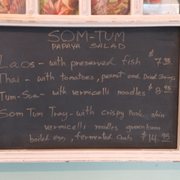 SOM-TUM
PAPAYA SALAD
Laos - with preserved fish $7.95
Thai - with tomatoes, peanut and Dried Shrimps
Tum-Sua - with vermicelli noodles $8.95
Som Tum Tray - with crispy Pork skin
vermicelli noodles
boiled egg, fermented crab $14.95